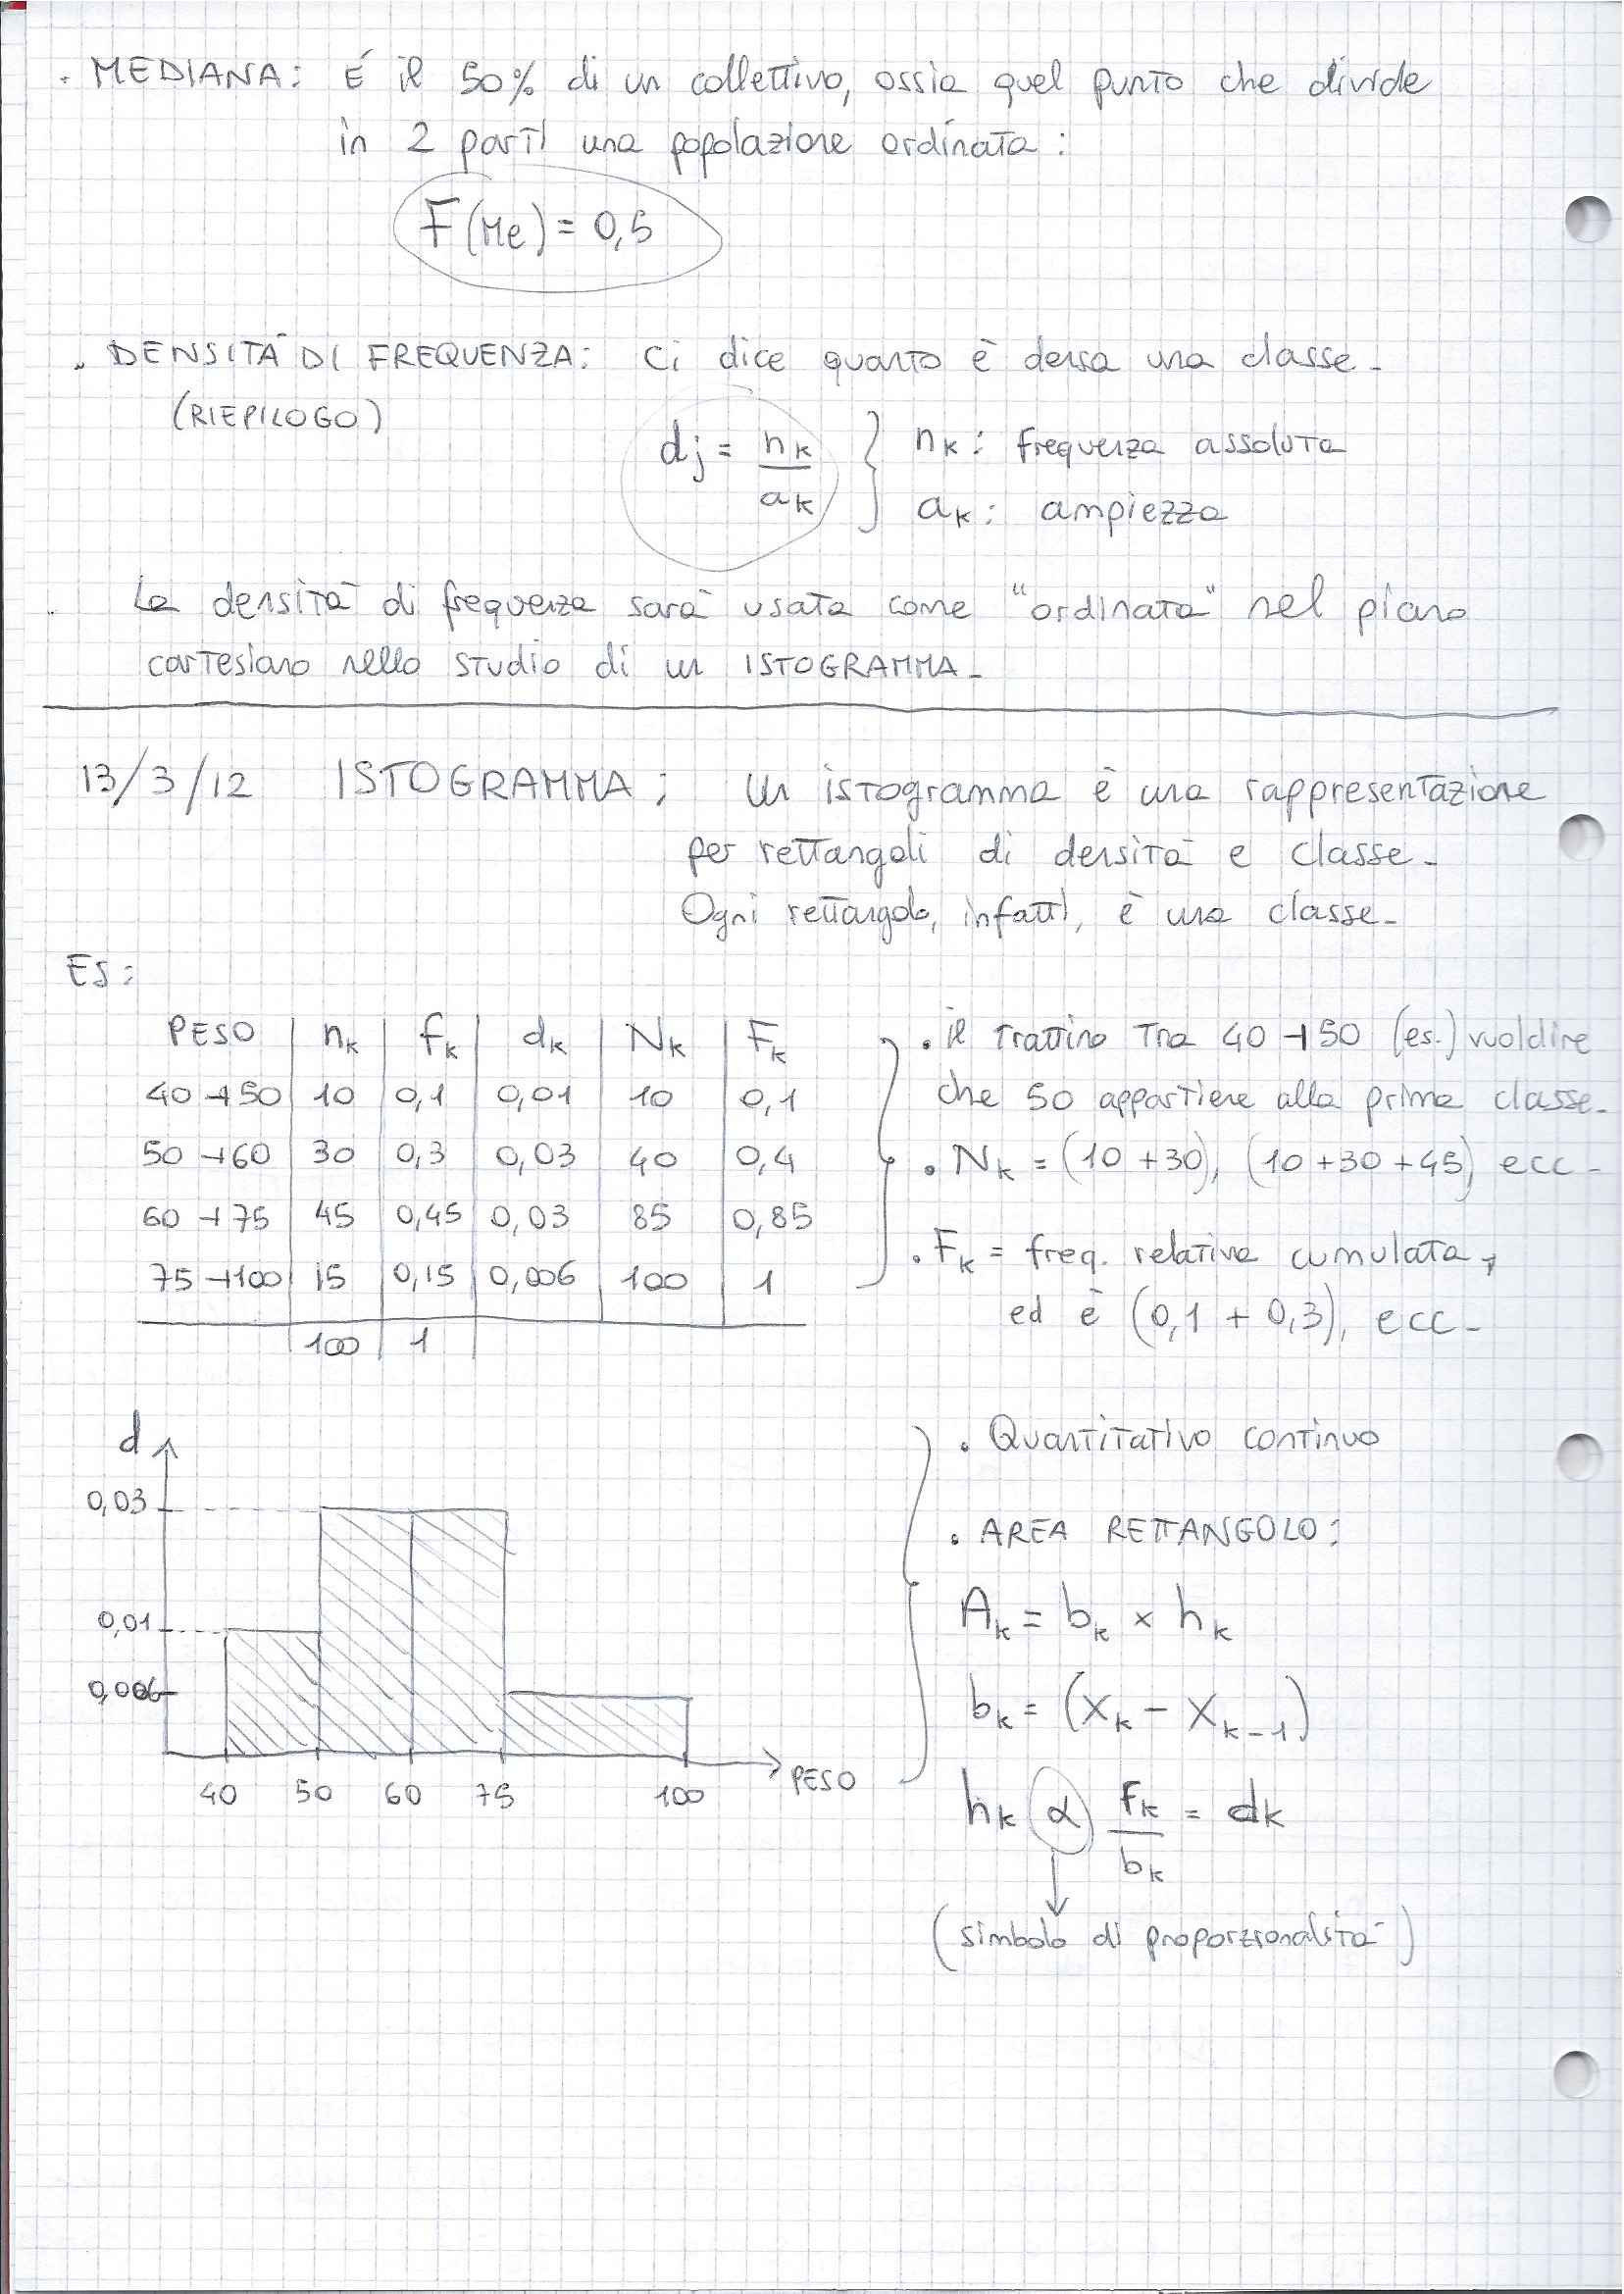 . MEDIANA: É il 50% di un collettivo, ossia quel punto che divide
in 2 parti una popolazione ordinata:
F(Me) = 0,5
. DENSITÀ DI FREQUENZA: Ci dice quanto è densa una classe.
(RIEPILOGO)
dj = nk / ak } nk: frequenza assoluta
ak: ampiezza
. La densità di frequenza sarà usata come "ordinata" nel piano
cartesiano nello studio di un ISTOGRAMMA.
13/3/12 ISTOGRAMMA: Un istogramma è una rappresentazione
per rettangoli di densità e classe.
Ogni rettangolo, infatti, è una classe.
ES:
PESO | nk | fk | dk | Nk | Fk
40 ⊣ 50 | 10 | 0,1 | 0,01 | 10 | 0,1
50 ⊣ 60 | 30 | 0,3 | 0,03 | 40 | 0,4
60 ⊣ 75 | 45 | 0,45 | 0,03 | 85 | 0,85
75 ⊣ 100 | 15 | 0,15 | 0,006 | 100 | 1
100 | 1
. il trattino tra 40 ⊣ 50 (es.) vuol dire
che 50 appartiene alla prima classe.
. Nk = (10 + 30), (10 + 30 + 45) ecc.
. Fk = freq. relativa cumulata,
ed è (0,1 + 0,3), ecc.
d
0,03
0,01
0,006
40 50 60 75 100 PESO
. Quantitativo continuo
. AREA RETTANGOLO:
Ak = bk × hk
bk = (Xk - Xk-1)
hk α fk / bk = dk
(simbolo di proporzionalità)